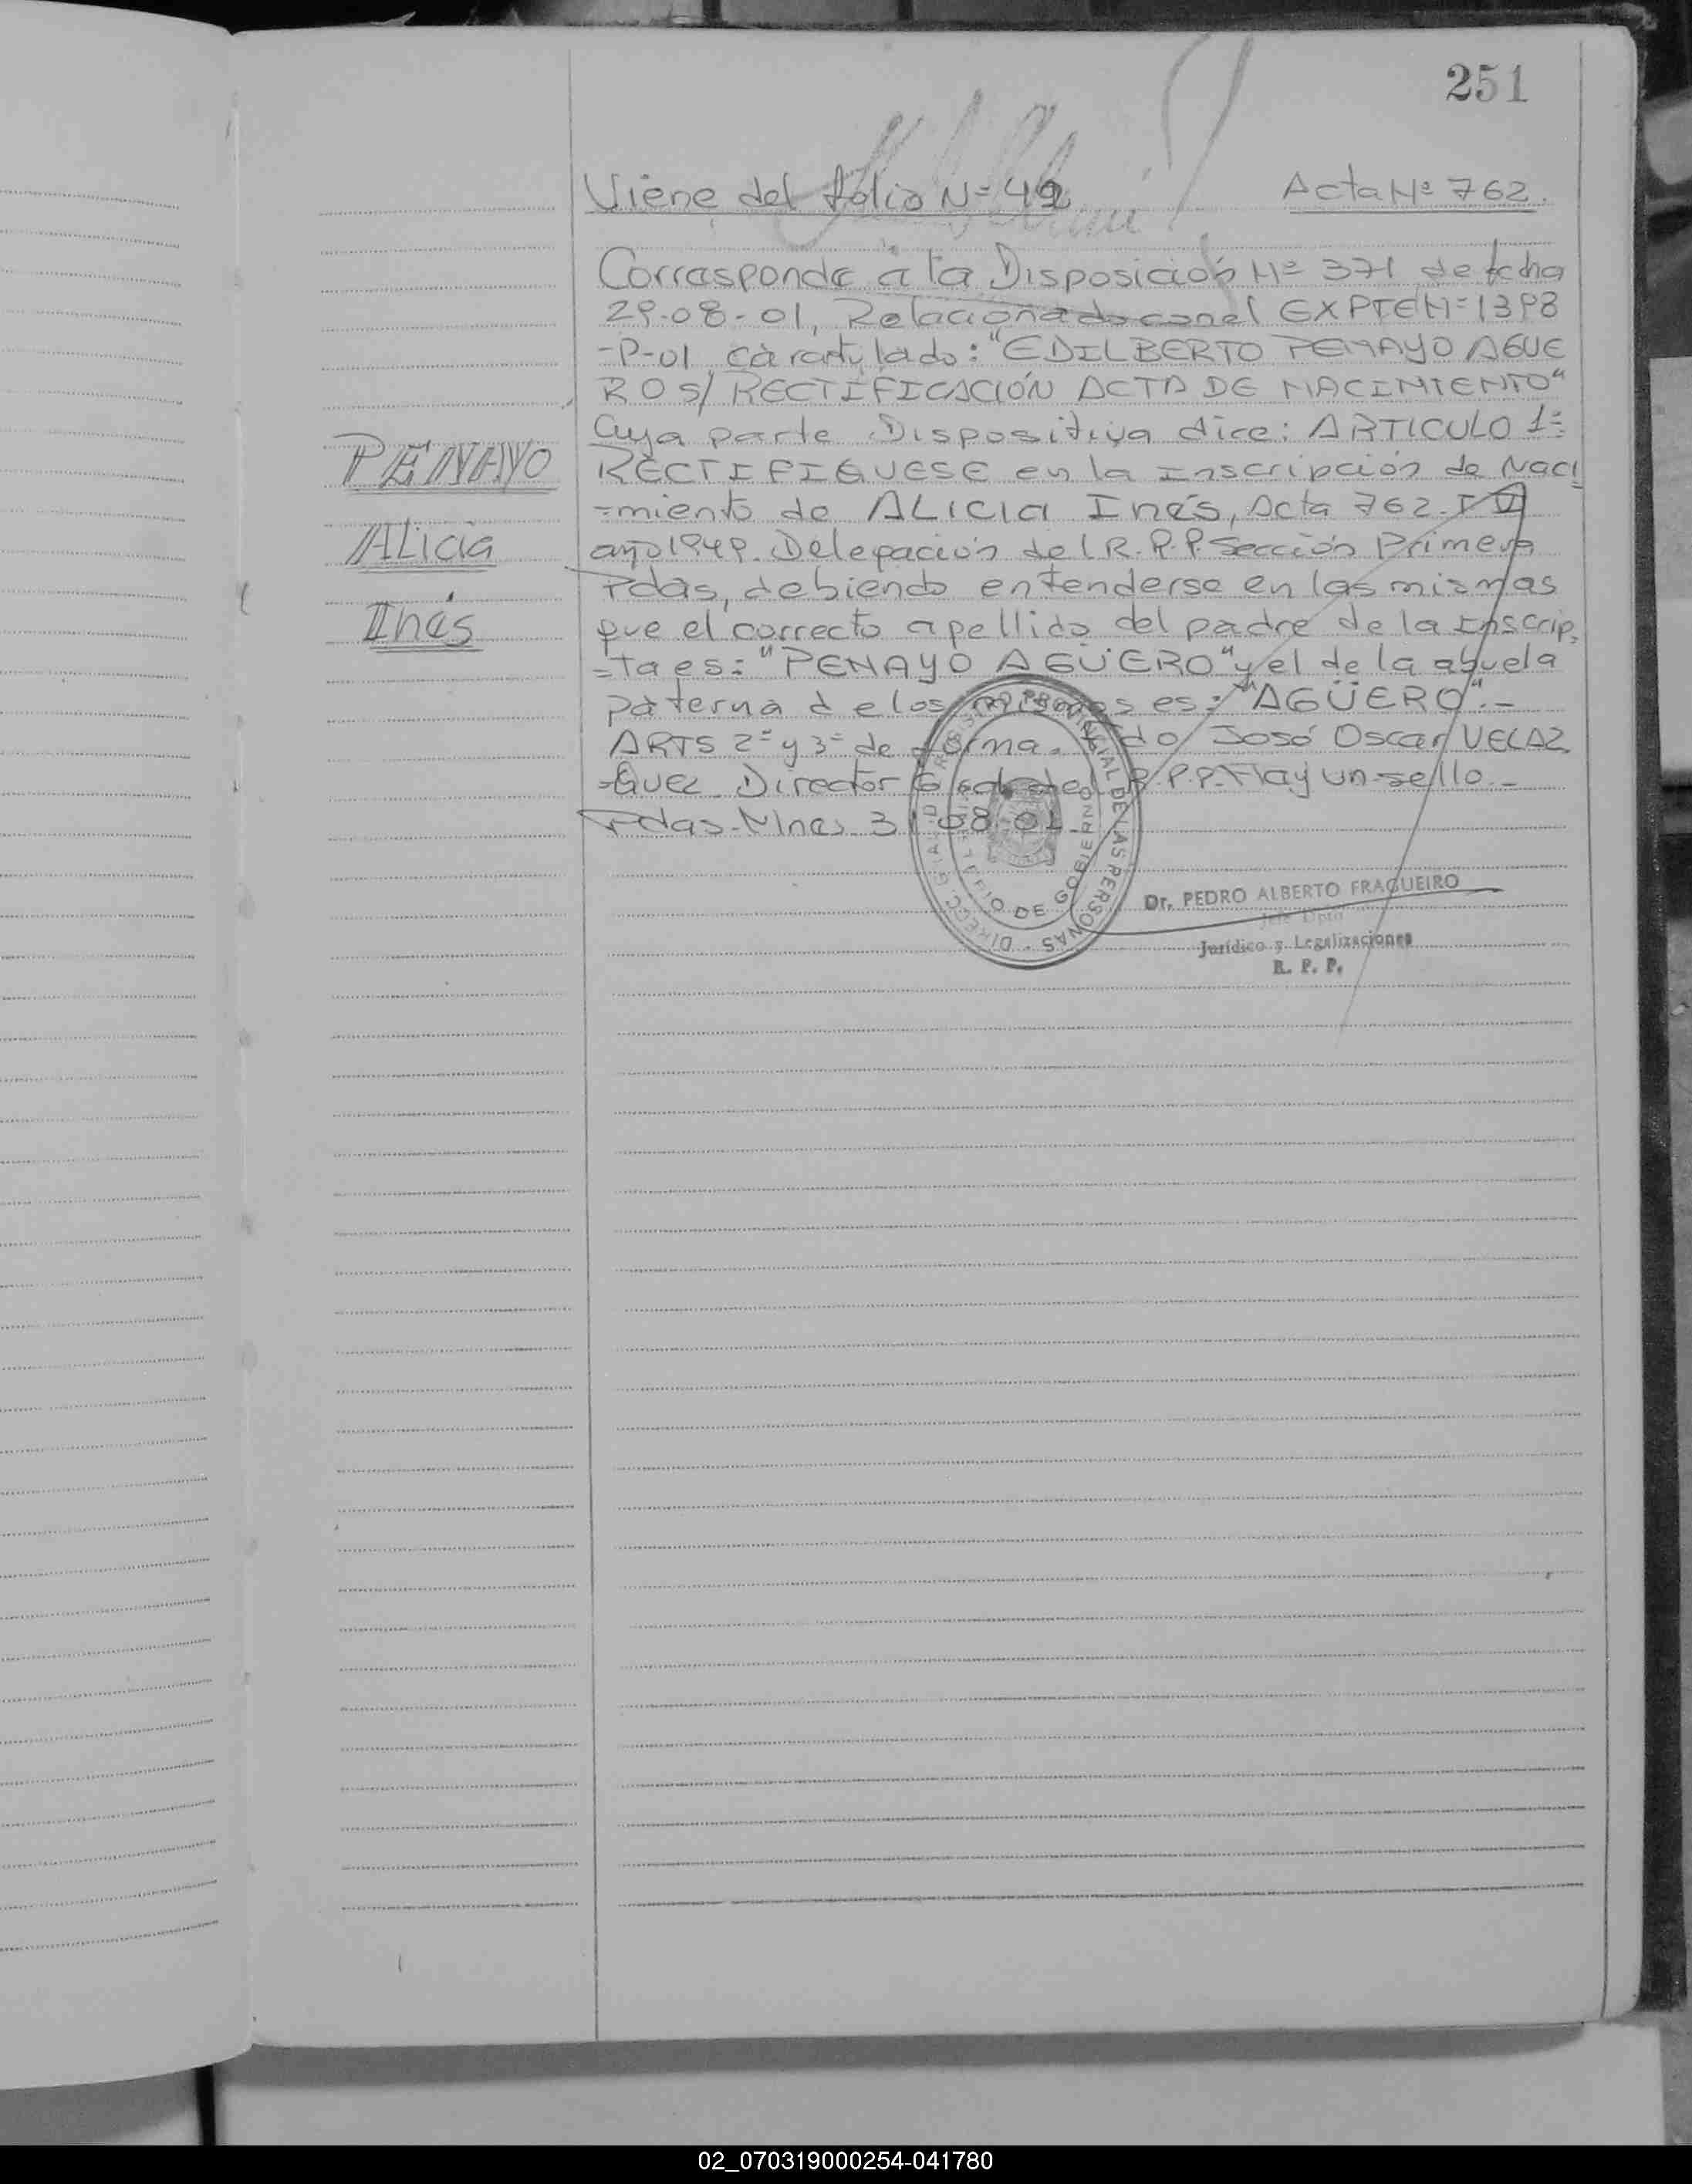 251
Viene del folio Nº 49
Acta Nº 762.
Corresponde a la Disposición Nº 371, de fcha
29-08-01, Relacionado con el EXPTE Nº 1398
-P-01 caratulado: "EDILBERTO PENAYO AGUE
RO S/ RECTIFICACIÓN ACTA DE NACIMIENTO"
Cuya parte Dispositiva dice: ARTICULO 1º
RECTIFIQUESE en la Inscripción de Naci
PENAYO
=miento de ALICIA Inés, Acta 762. T
Alicia
año 1949. Delegación del R.P.P. Sección Primera
Pdas, debiendo entenderse en las mismas
Inés
que el correcto apellido del padre de la inscrip
=ta es: "PENAYO AGÜERO" y el de la abuela
paterna de los mismos es: "AGÜERO".-
ARTS 2º y 3º de forma. Fdo José Oscar VELAZ
=QUEZ Director Gral del R.P.P. Hay un sello.-
Pdas-Mnes 31-08-01
PROVINCIAL DE LAS PERSONAS - DIRECC
DE GOBIERNO
Dr. PEDRO ALBERTO FRAGUEIRO
Jefe Dpto
Jurídico y Legalizaciones
R. P. P.
02_070319000254-041780